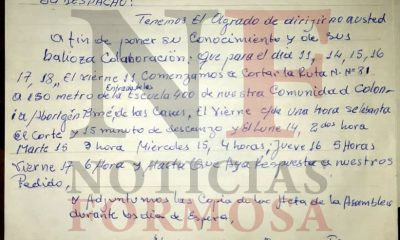 SU DESPACHO:
Tenemos El Agrado de dirigirno austed
a fin de poner su Conocimiento y de sus
balioza Colaboración: que para el dia 11, 14, 15, 16
17, 18, El vierne 11 Comenzamos a Cortar la Ruta N. Nº 81
a 150 metro de la Escuela 400 de nuestra Comunidad Colo
nia Aborigen Bmé. de las Casas, El vierne de una hora
El Corte y 15 minuto de descanzo y El lune 14, 2 dos hora
Marte 15 3 hora Miercoles 15, 4 horas, Jueve 16 5 Horas
Vierne 17 6 Hora y Hasta Que Aya Respuesta a nuestros
Pedido,
y Adjuntamos las Copia de las Acta de la Asamblea
durante los dia de Espera,
NF
NOTICIAS
FORMOSA